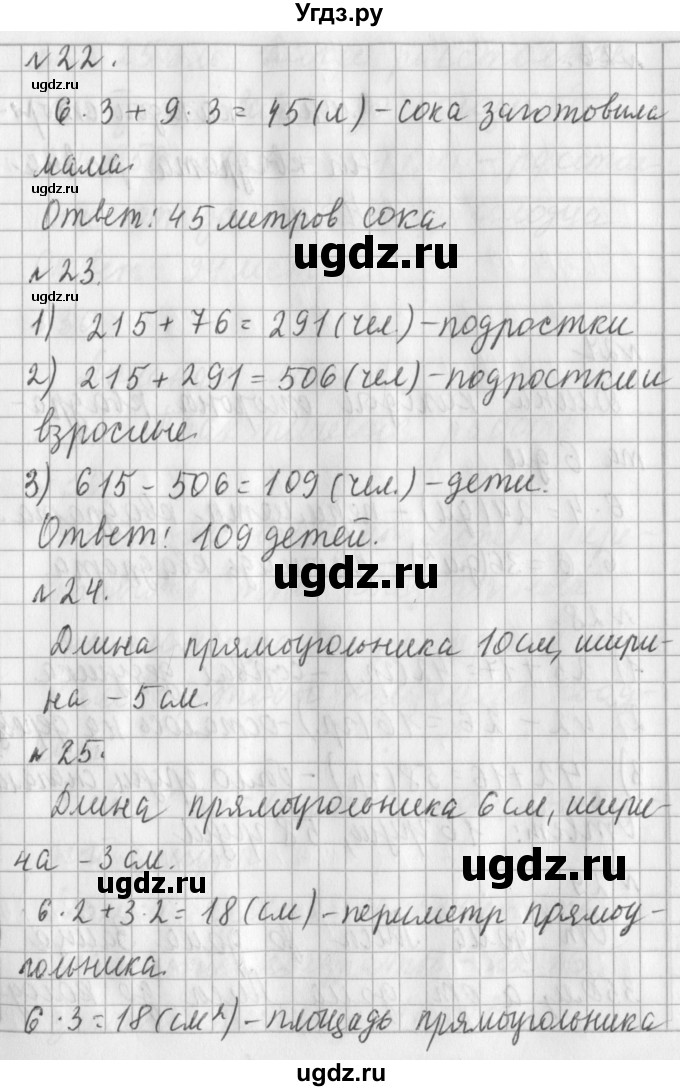 Угдз.ру
№22.
ugdz.ru
6·3+9·3=45(л)-сока заготовила
ugdz.ru
мама.
ugdz.ru
Ответ: 45 метров сока.
ugdz.ru
№23.
ugdz.ru
1) 215+76=291(чел.)-подростки
2) 215+291=506(чел)-подростки и
взрослые.
ugdz.ru
3) 615-506=109(чел.)-дети.
Ответ: 109 детей.
ugdz.ru
№24.
Длина прямоугольника 10см, шири-
на -5см.
ugdz.ru
№25.
Длина прямоугольника 6см, шири-
на -3см.
ugdz.ru
ugdz.ru
6·2+3·2=18(см)-периметр прямоу-
гольника.
ugdz.ru
6·3=18(см²)-площадь прямоугольника
ugdz.ru